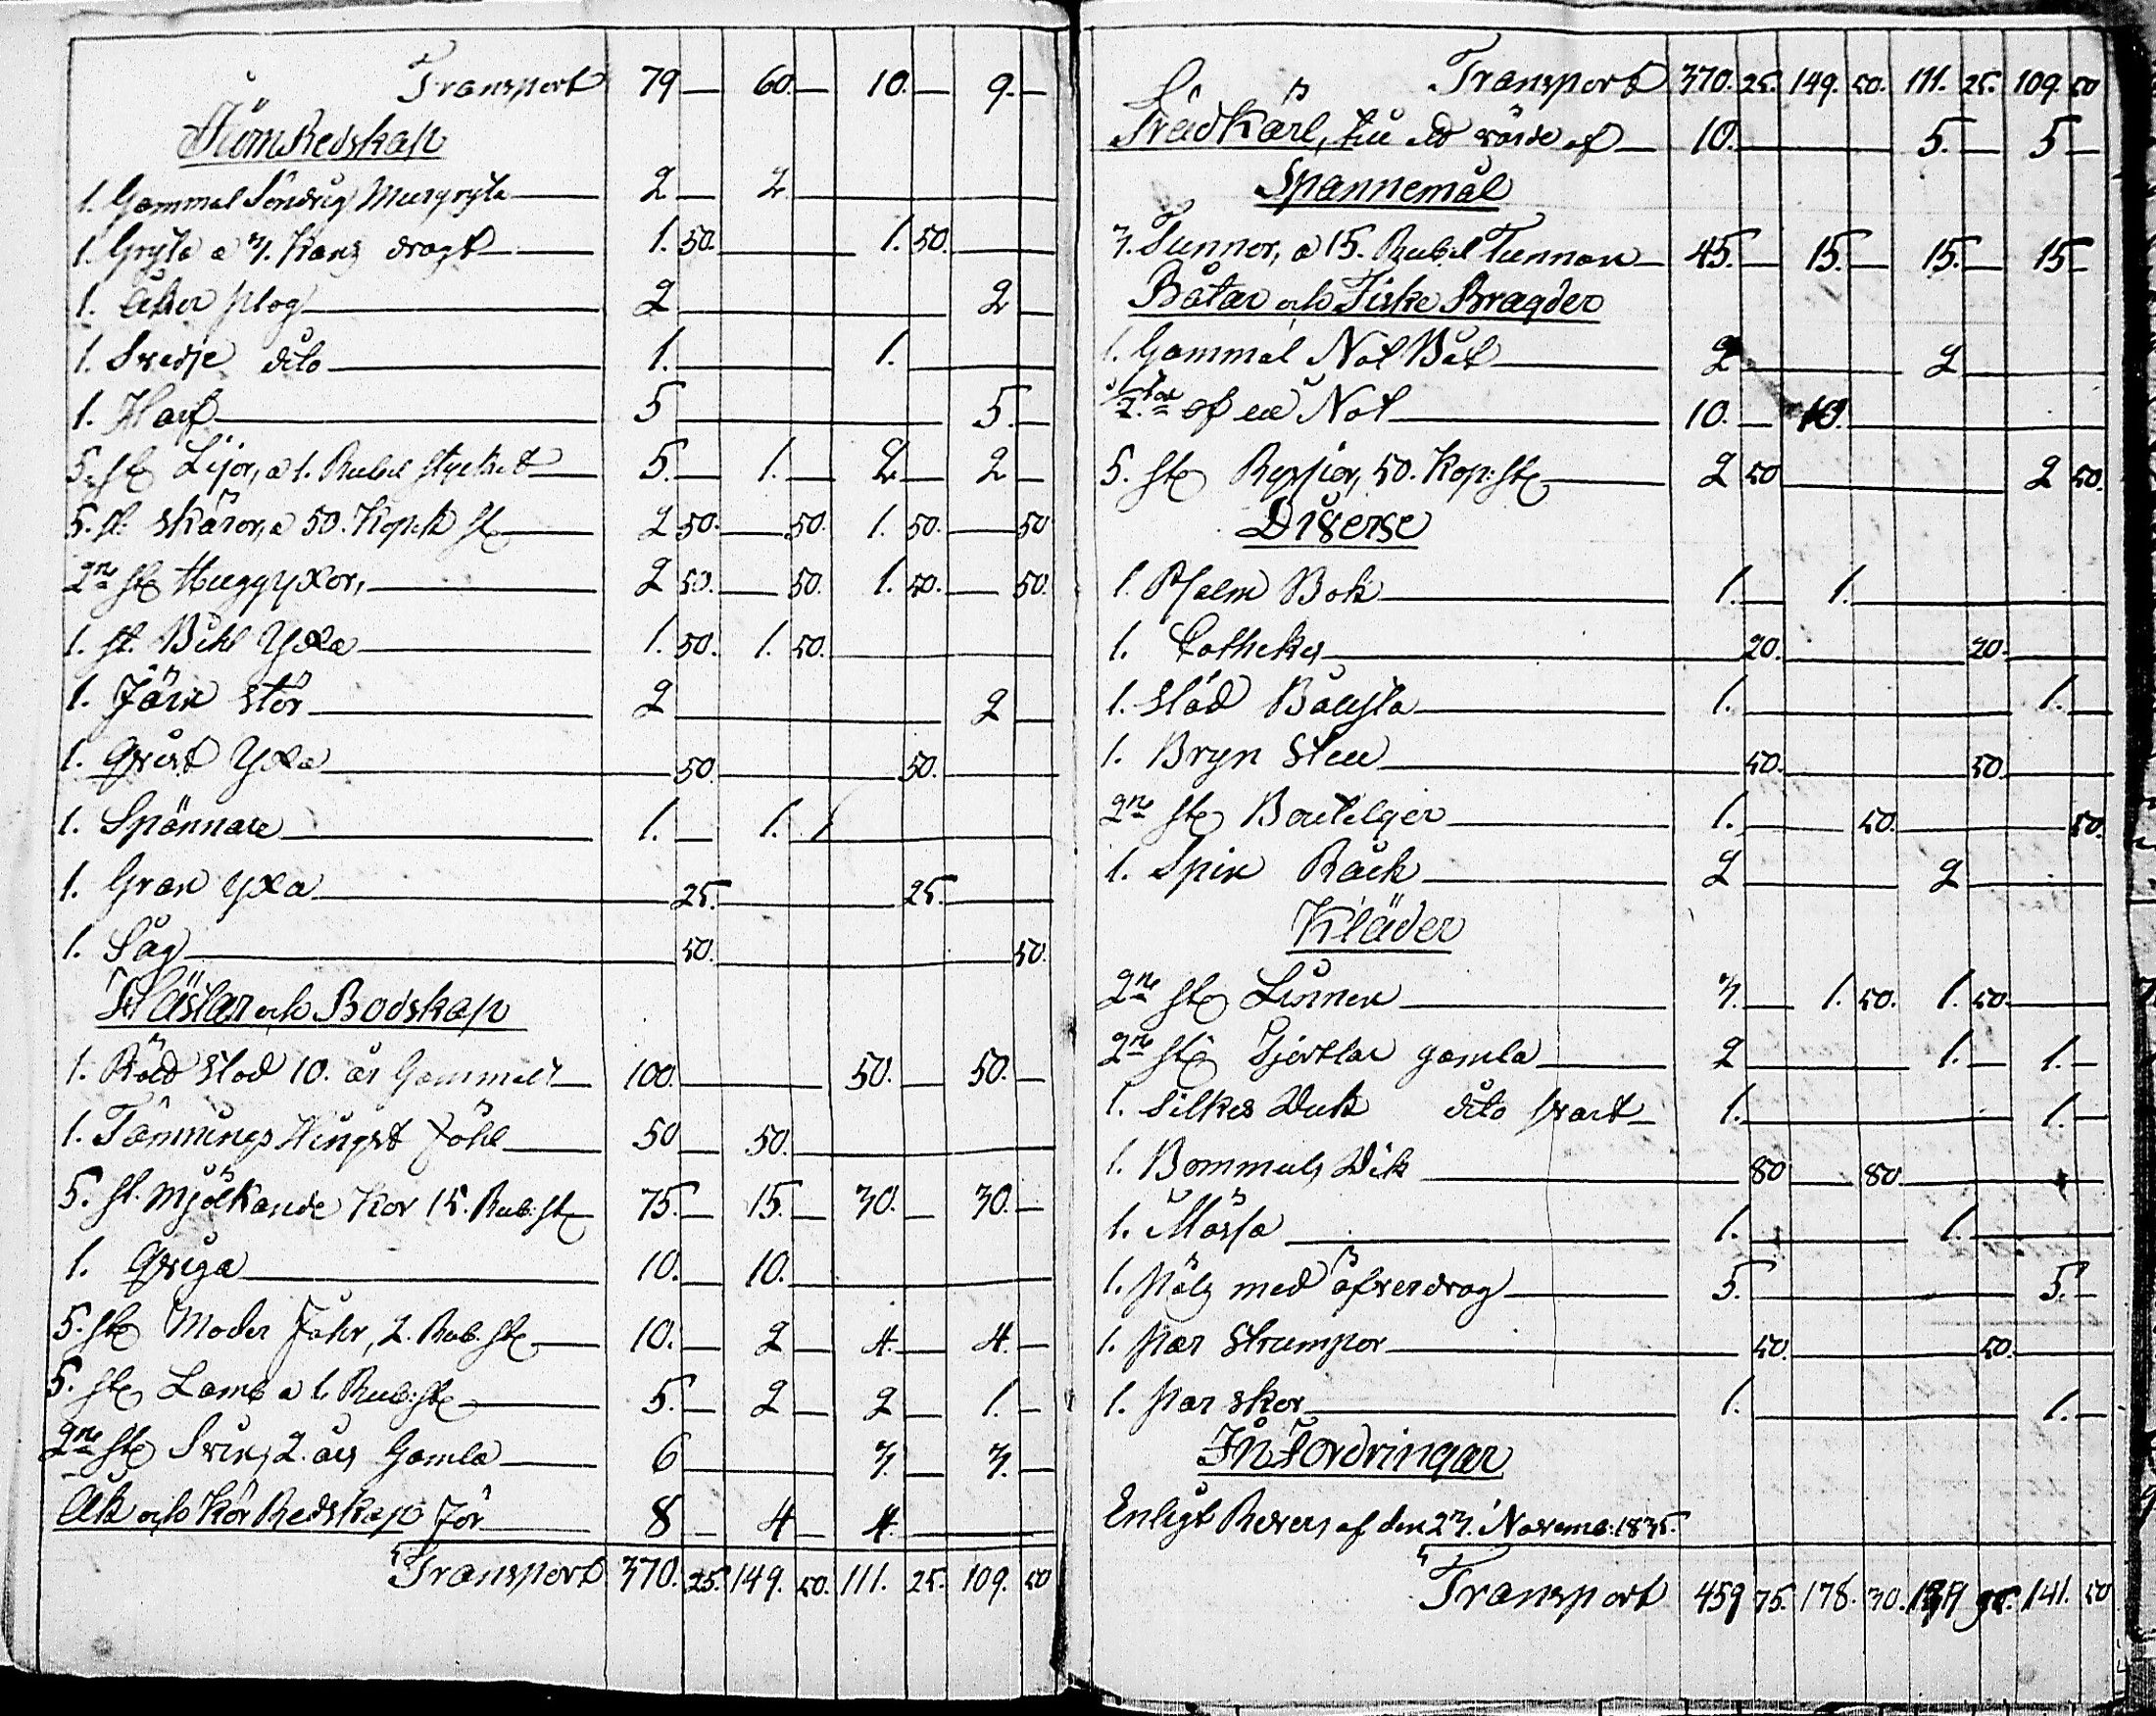 Transport 79 — 60. — 10. — 9. —
Jürn Redskap
1. Gammal Söndrig Murgryta 2 — 2
1. Gryta a 3. Kans dragt 1. 50. 1. 50.
1. Åker plog 2 2 —
1. Svedje dito 1. 1.
1. Harf 5 5. —
5. st Lijor, a 1. Rubel stycket 5. — 1. — 2 — 2 —
5. st. skäror, a 50. Kopek st 2 50. — 50. 1. 50. — 50
2ne st Huggyxor, 2 50. — 50. 1. 50. — 50.
1. st. Bihl Yxa 1. 50. 1. 50.
1. Järn stör 2 2 —
1. Qvist Yxa 50. 50.
1. Spännare 1. — 1.
1. Gran yxa 25. 25.
1. Såg 50. 50.
Hästar och Bodskap
1. Röd stod 10. år Gammalt 100. 50. — 50. —
1. Tämnings Hingst Föhl 50 — 50.
5. st. Mjölkande Kor 15. Rub: st 75. — 15. — 30. — 30. —
1. Qviga 10. — 10.
5. st Moder Fåhr, 2. Rub. st 10. — 2 — 4. — 4. —
5. st Lamb a 1. Rub: st 5. — 2 — 2 — 1. —
2ne st Svin, 2. års Gamla 6 3. — 3. —
Åk och Kör Redskap för 8 — 4 — 4.
Transport 370. 25. 149. 50. 111. 25. 109. 50
Transport 370. 25. 149. 50. 111. 25. 109. 50
Trädkärl, till ett värde af 10. 5. — 5 —
Spannemål
3. Tunnor, a 15. Rubel Tunnan 45. — 15. — 15. — 15 —
Båtar och Fiske Bragder
1. Gammal Not Båt 2 2
af en Not 10. — 10.
5. st Ryssjor, 50. Kop: st 2 50 2 50.
Diverse
1. Psalm Bok 1. — 1.
1. Cathekes 20. 20.
1. städ 1. 1. —
1. Bryn sten 50. 50.
2ne st Boutelger 1. 50. 50.
1. Spin Råck 2 2
Kläder
2ne st 3. — 1. 50. 1. 50.
2ne st Tjortlar gamla 2 1. — 1. —
1. Silkes Duk dito svart 1. 1. —
1. Bommuls Duk 80 80.
1. Mössa 1. 1.
1. Pälz med öfverdrag 5. 5. —
1. Par strumpor 50. 50.
1. Par skor 1. 1. —
Infordringar
Enligt Revers af den 23. Novemb: 1835.
Transport 459 75. 178. 30. 141. 50